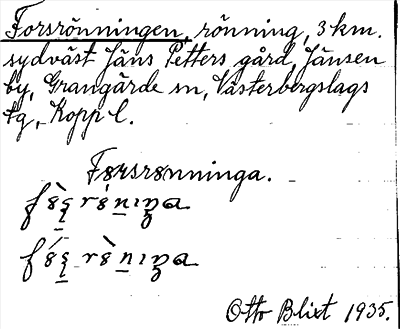 Forsrönningen, rönning, 3 km.
sydväst Jäns Petters gård, Jänsen
by, Grangärde sn, Västerbergslags
tg, Kopp l.
Førsrønninga.
Otto Blixt 1935.